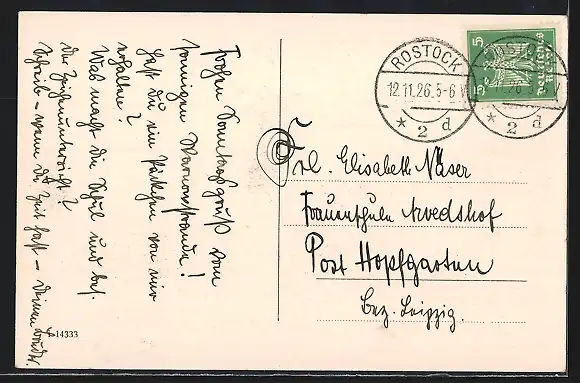 Frohen Sonntagsgruß vom
sonnigen Warnowstrande!
Hast du ein Päckchen von mir
erhalten?
Was macht die Schul und bes.
der Zeichenunterricht?
Schreib – wenn du Zeit hast – Deinem Bruder.
14333
ROSTOCK
12.11.26.5-6 V
* 2 d
5
5
Deutsches
Reich
* 2 d
Frl. Elisabeth Näser
Frauenschule Arvedshof
Post Hopfgarten
Bez. Leipzig.